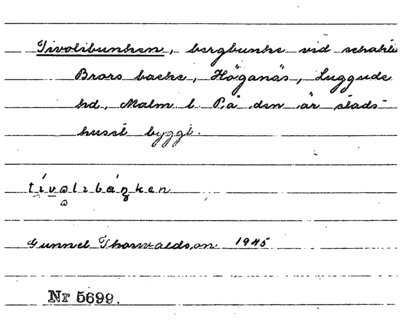 Tivolibunken, bergbunke vid schaktet
Brors backe, Höganäs, Luggude
hd, Malm. l. På den är stads-
huset byggt.
tivolibáŋken
Gunnel Thorvaldson. 1945
Nr 5699.